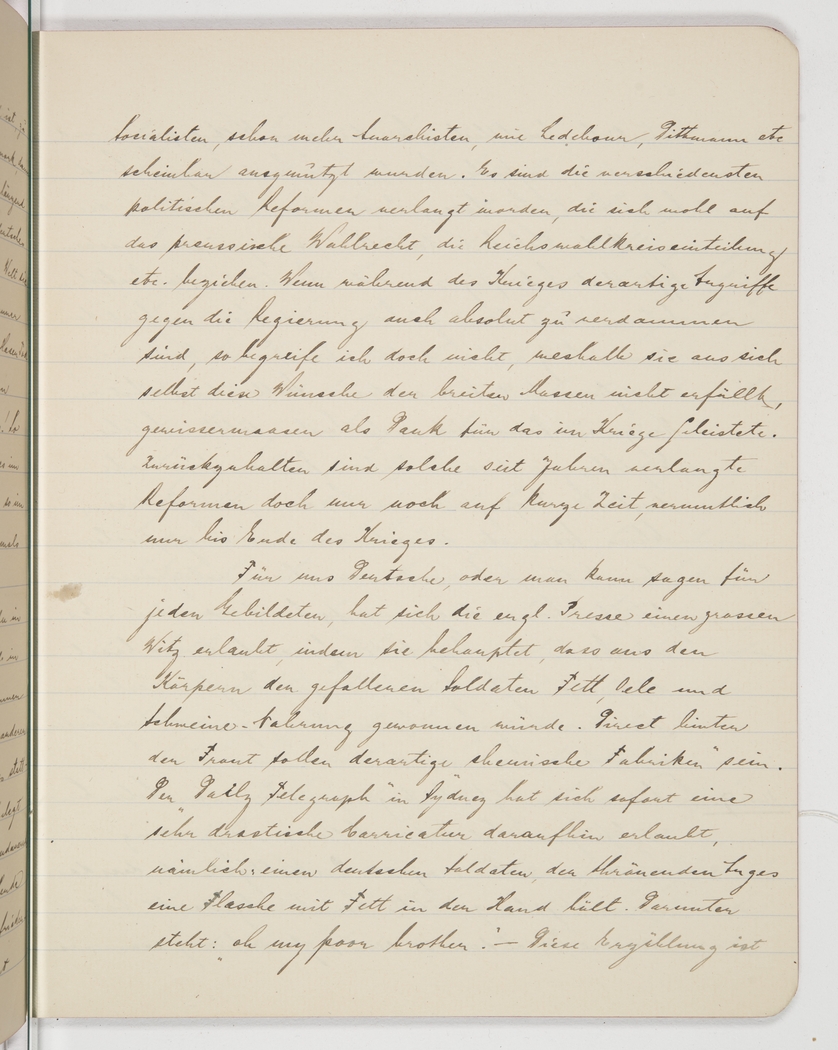 Sozialisten, schon mehr Anarchisten, wie Ledebour, Dittmann etc
scheinbar ausgenützt wurden. Es sind die verschiedensten
politischen Reformen verlangt worden, die sich wohl auf
das preussische Wahlrecht, die Reichswahlkreiseinteilung
etc. beziehen. Wenn während des Krieges derartige Angriffe
gegen die Regierung auch absolut zu verdammen
sind, so begreife ich doch nicht, weshalb sie aus sich
selbst diese Wünsche der breiten Massen nicht erfüllt,
gewissermassen als Dank für das im Kriege Geleistete.
Zurückzuhalten sind solche seit Jahren verlangte
Reformen doch nur noch auf kurze Zeit, vermutlich
nur bis Ende des Krieges.
Für uns Deutsche, oder man kann sagen für
jeden Gebildeten, hat sich die engl. Presse einen grossen
Witz erlaubt, indem sie behauptet, dass aus den
Körpern der gefallenen Soldaten Fett, Oele und
Schweine-Nahrung gewonnen würde. Direct hinter
der Front sollen derartige "chemische Fabriken" sein.
Der "Daily Telegraph" in Sydney hat sich sofort eine
sehr drastische Carricatur daraufhin erlaubt,
nämlich: einen deutschen Soldaten, der thränenden Auges
eine Flasche mit Fett in der Hand hält. Darunter
steht: "oh my poor brother." — Diese Erzählung ist